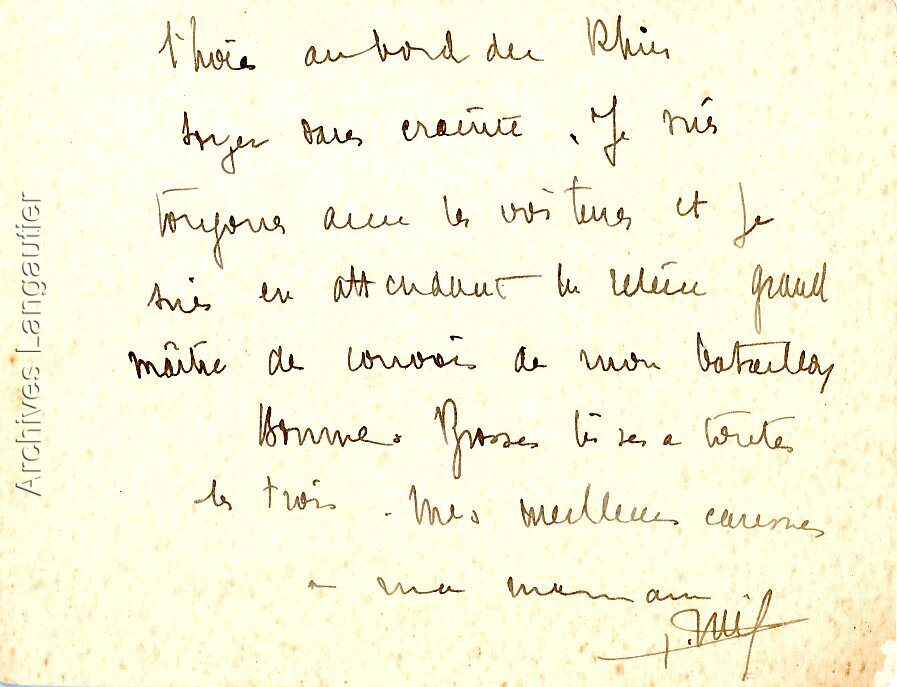 au bord du Rhin
soyez sans crainte. Je suis
toujours avec les voitures et je
suis en attendant la relève grand
maître de convois de mon bataillon
Bonne. Grosses bises a toutes
les trois. Mes meilleures caresses
a ma maman
Archives Langautier